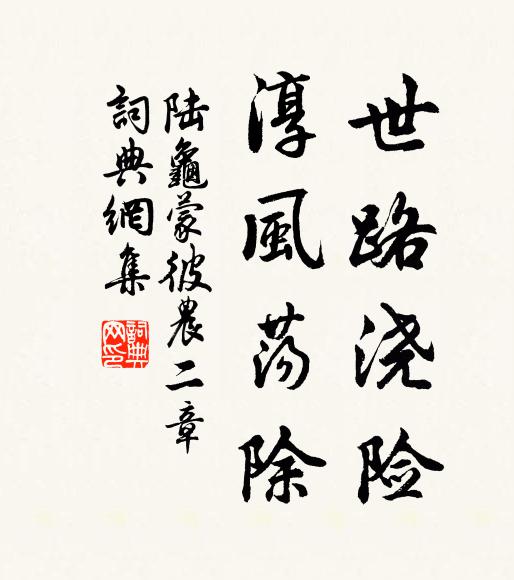 世路浇险
淳風荡除
陆龜蒙彼農二章
詞典網集
詞典网印